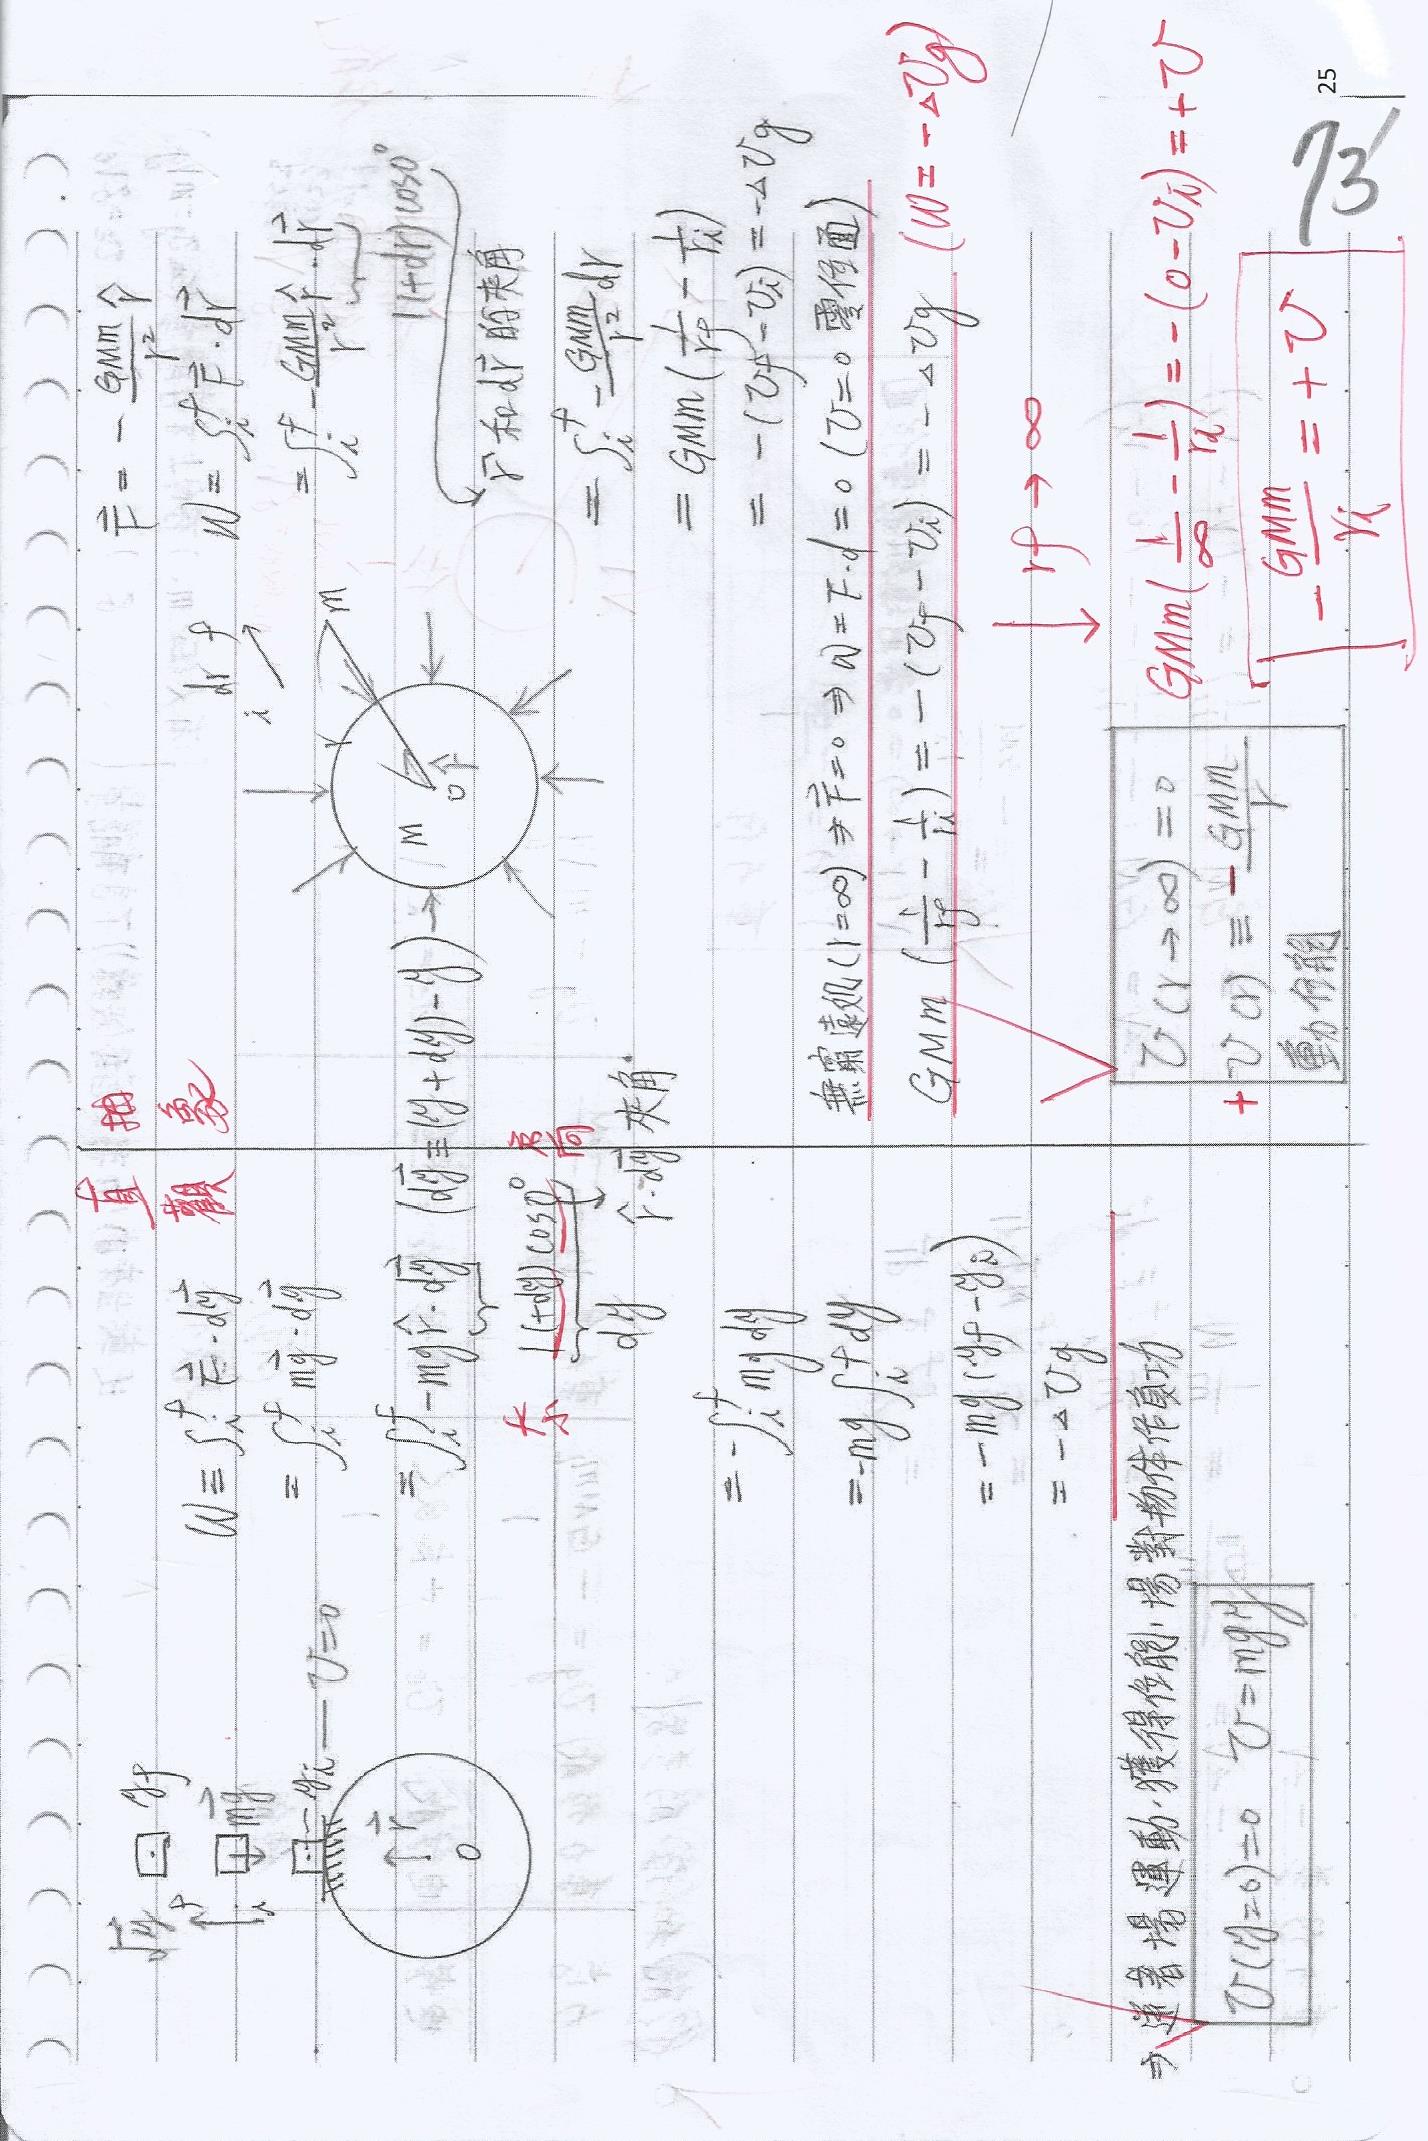 直觀
yf
m⃗g
yi — U=0
r⃗
O
W ≡ ∫ᵢᶠ F⃗ · dy⃗
= ∫ᵢᶠ m⃗g · dy⃗
= ∫ᵢᶠ -mg r̂ · dy⃗ (dy⃗ ≡ (y+dy)-y)
大小 1(+dy) cos0° 方向
dy r̂·dy⃗夾角
= -∫ᵢᶠ mg dy
= -mg ∫ᵢᶠ dy
= -mg (yf - yi)
= -△Ug
⇒ 逆著場運動,獲得位能,場對物体作負功
U(y=0)=0 U=mgy
抽象
dr
i f
m
M
r̂
O
F⃗ = - GMm/r² r̂
W = ∫ᵢᶠ F⃗ · dr⃗
= ∫ᵢᶠ - GMm/r² r̂ · dr⃗
1(+dr) cos0°
r⃗和dr⃗的夾角
= ∫ᵢᶠ - GMm/r² dr
= GMm (1/rf - 1/ri)
= -(Uf - Ui) = -△Ug
無窮遠処(r=∞) ⇒ F⃗=0 ⇒ W=F·d=0 (U=0 零位面)
GMm (1/rf - 1/ri) = -(Uf - Ui) = -△Ug (W=-△Ug)
↓ rf→∞
U(r→∞)=0
+ U(r) ≡ - GMm/r
重力位能
GMm (1/∞ - 1/ri) = -(0-Ui) = +U
- GMm/ri = +U
25
73'